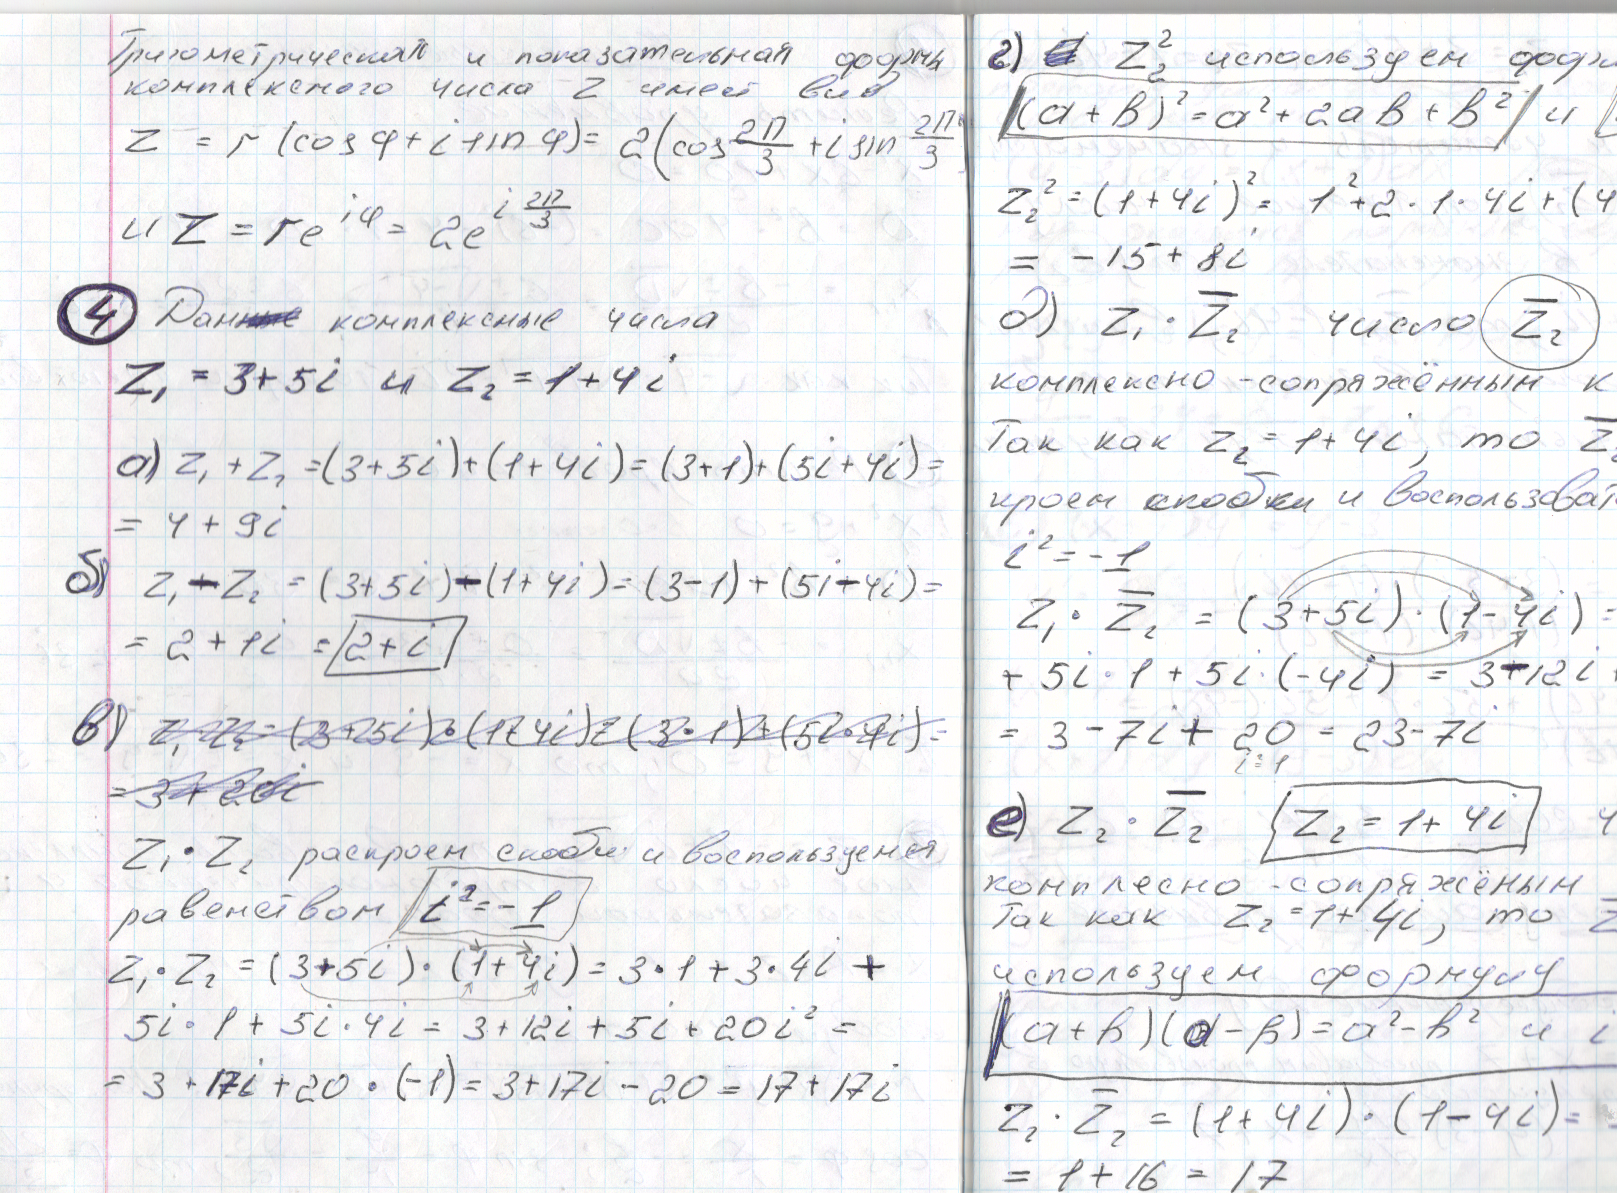 Тригометрическая и показательная формы
комплексного числа Z имеет вид
Z = r (cos φ + i sin φ) = 2(cos 2π/3 + i sin 2π/3)
и Z = re^iφ = 2e^i 2π/3
4 Данные комплексные числа
Z₁ = 3+5i и Z₂ = 1+4i
а) Z₁ + Z₂ = (3+5i)+(1+4i) = (3+1)+(5i+4i) =
= 4 + 9i
б) Z₁ - Z₂ = (3+5i)-(1+4i) = (3-1)+(5i-4i) =
= 2 + 1i = 2+i
в)
Z₁·Z₂ раскроем скобки и воспользуемся
равенством i² = -1
Z₁·Z₂ = (3+5i)·(1+4i) = 3·1 + 3·4i +
5i·1 + 5i·4i = 3+12i+5i+20i² =
= 3 + 17i + 20·(-1) = 3+17i - 20 = 17+17i
г) Z₂² используем
(a+b)² = a²+2ab+b² и
Z₂² = (1+4i)² = 1²+2·1·4i+(4
= -15 + 8i
д) Z₁·Z̅₂ число Z̅₂
комплексно-сопряжённым к
Так как Z₂ = 1+4i, то Z̅₂
кроем скобки и воспользоват
i² = -1
Z₁·Z̅₂ = (3+5i)·(1-4i) =
+ 5i·1 + 5i·(-4i) = 3-12i +
= 3 - 7i + 20 = 23-7i
i=1
е) Z₂·Z̅₂ Z₂ = 1+4i
комплесно-сопряжёным
Так как Z₂ = 1+4i, то Z̅
используем формулу
(a+b)(a-b) = a²-b² и i
Z₂·Z̅₂ = (1+4i)·(1-4i) =
= 1+16 = 17